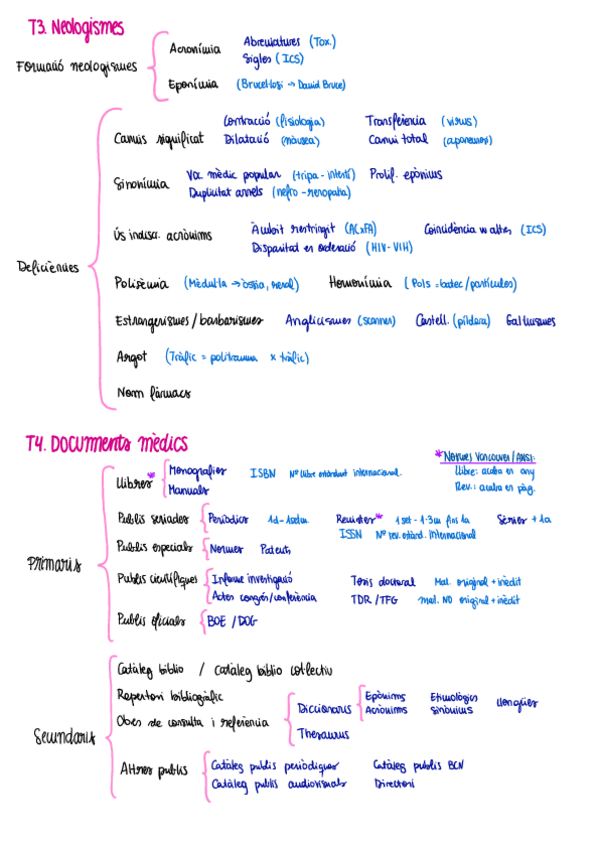 T3. Neologismes
Formació neologismes
Acronímia Abreviatures (Tox.)
Sigles (ICS)
Eponímia (Brucel·losi → David Bruce)
Deficiències
Canvis significat Contracció (fisiologia) Transferència (virus)
Dilatació (nàusea) Canvi total (aponeurosi)
Sinonímia Voc. mèdic popular (tripa - intestí) Prolif. epònims
Duplicitat arrels (nefro - renopatia)
Ús indiscr. acrònims Àmbit restringit (ACxFA) Coincidència w altres (ICS)
Disparitat en ordenació (HIV - VIH)
Polisèmia (Medul·la → òssia, renal) Homonímia (Pols = batec / partícules)
Estrangerismes / barbarismes Anglicismes (scanner) Castell. (píldora) Gal·licismes
Argot (Tràfic = politrauma x tràfic)
Nom fàrmacs
T4. Documents mèdics
* Normes Vancouver / ANSI:
Llibre: acaba en any
Rev.: acaba en pàg.
Primaris
Llibres * Monografies ISBN Nº llibre estàndard internacional.
Manuals
Publis seriades Periòdics 1d - 1setm. Revistes * 1set - 1-3m fins 1a Sèries + 1a
ISSN Nº rev. estànd. Internacional
Publis especials Normes Patents
Publis científiques Informe investigació Tesis doctoral Mat. original + inèdit
Actes congrés/conferència TDR / TFG mat. NO original + inèdit
Publis oficials BOE / DOG
Secundaris
Catàleg biblio / catàleg biblio col·lectiu
Repertori bibliogràfic
Obres de consulta i referència Diccionaris Epònims Etimològics Llengües
Acrònims Sinònims
Thesaurus
Altres publis Catàleg publis periòdiques Catàleg publis BCN
Catàleg publis audiovisuals Directori